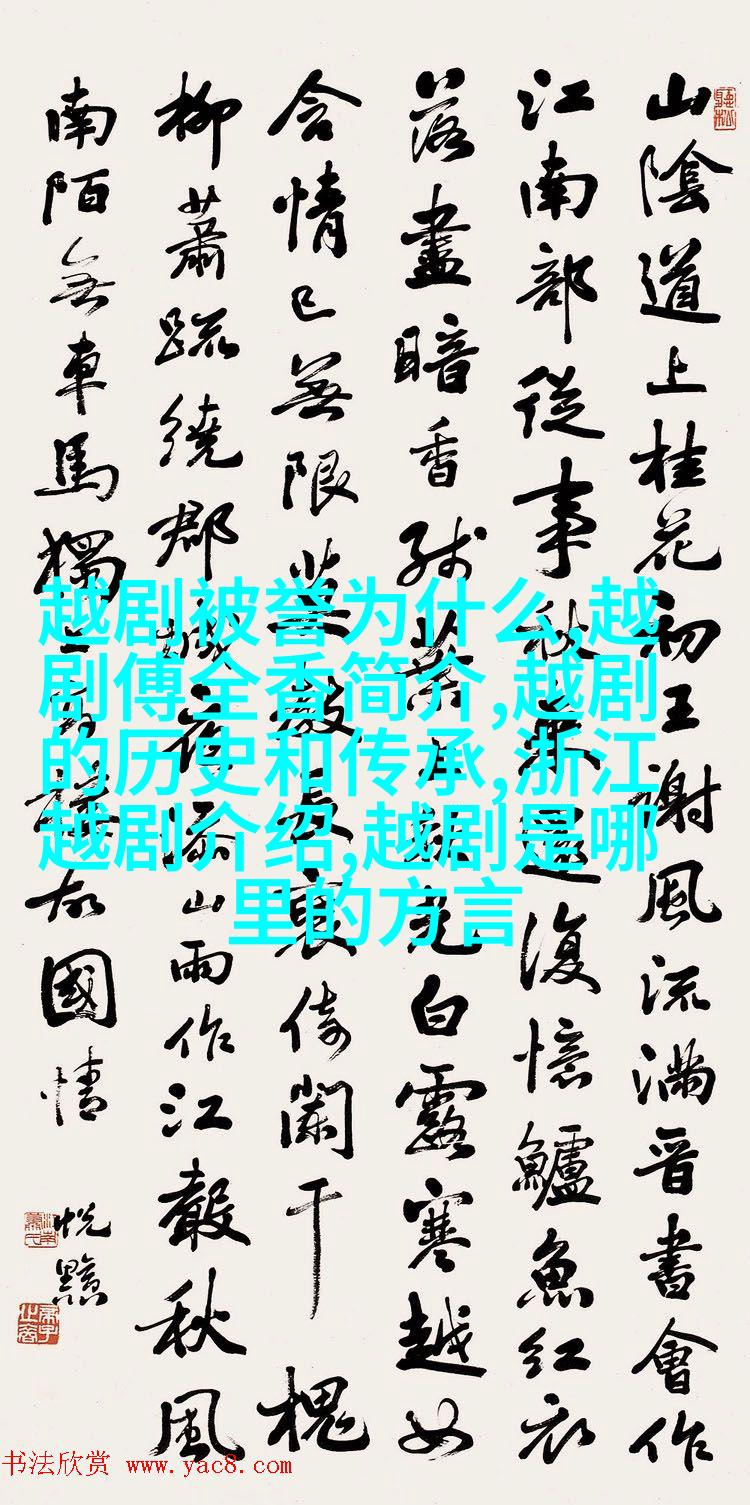 山陰道上桂花初王謝風流滿晉書會作
江南部從事秋來還復憶鱸魚紅衣
落盡暗香殘葉上秋光白露寒越女
含情已無限莫教長袖倚闌干槐
柳蕭疏繞郡城夜添山雨作江聲秋風
南陌無車馬獨上高樓故國情
越剧被誉为什么,越
剧傅全香简介,越剧
的历史和传承,浙江
越剧介绍,越剧是哪
里的方言
书法欣赏 www.yac8.com